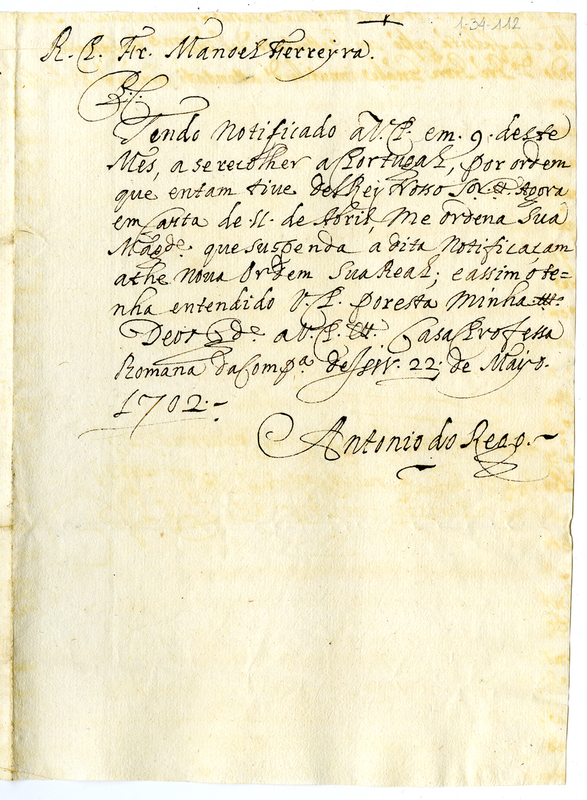 1-34-112
R. P. Fr. Manoel Ferreyra.
P. C.
Tendo Notificado a V. P. em. 9. deste
Mes, a se recolher a Portugal, por ordem
que entam tive del Rey Nosso Sor. Agora
em Carta de 11. de Abril, me ordena Sua
Magde. que suspenda a dita Notificaçam
athe nova Ordem Sua Real; e assim o te=
nha entendido V. P. por esta minha
Deos Gde. a V. P. Casa Professa
Romana da Compa. de Jesv. 22. de Mayo.
1702.
Antonio do Rego.